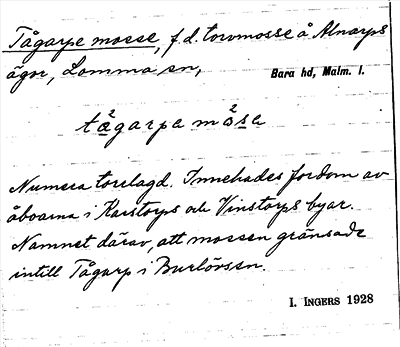 Tågarpe mosse, f.d. torvmosse å Alnarps
ägor, Lomma sn,
Bara hd, Malm. l.
tå²garpa må²sa
Numera torrlagd. Innehades fordom av
åboarna i Karstorps och Vinstorps byar.
Namnet därav, att mossen gränsade
intill Tågarp i Burlövs sn.
I. INGERS 1928